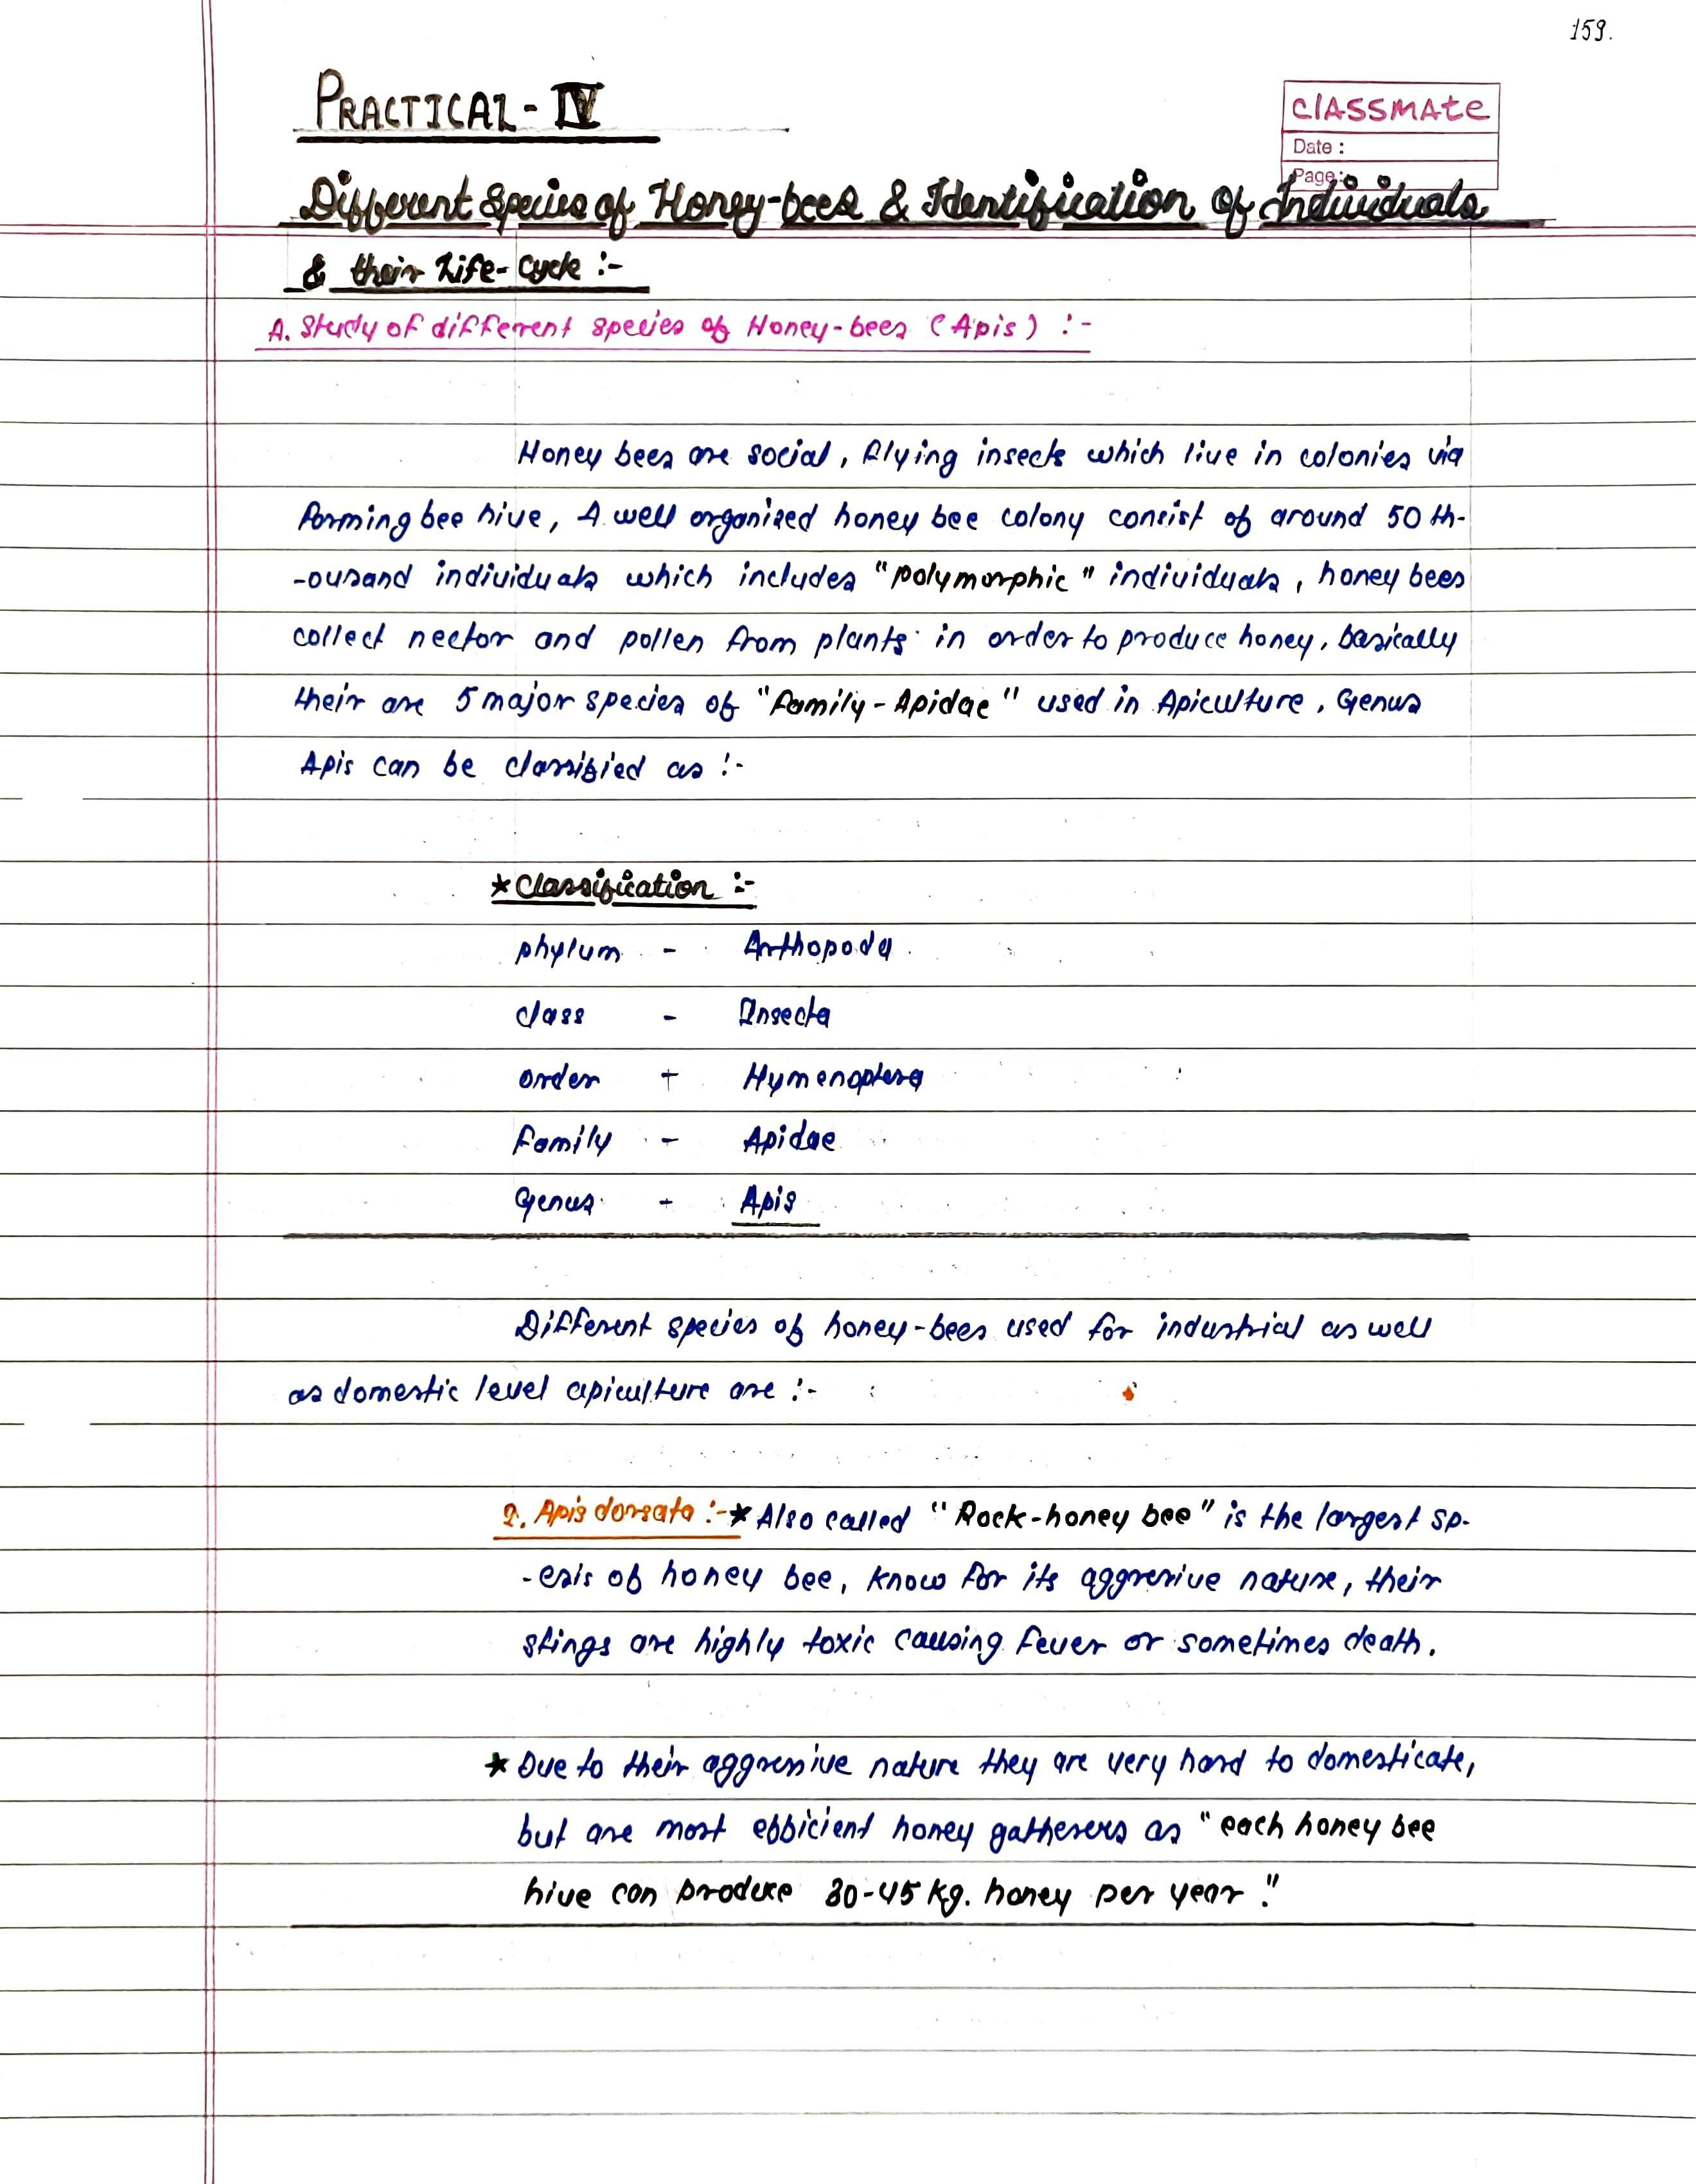 159.
PRACTICAL - IV
CLASSMATE
Date :
Page :
Different Species of Honey-bees & Identification of Individuals
& their Life-Cycle :-
A. Study of different species of Honey-bees (Apis) :-
Honey bees are social, flying insects which live in colonies via
forming bee hive, A well organized honey bee colony consist of around 50 th-
-ousand individuals which includes "polymorphic" individuals, honey bees
collect nector and pollen from plants in order to produce honey, basically
their are 5 major species of "family - Apidae" used in Apiculture, Genus
Apis can be classified as :-
* Classification :-
phylum - Arthopoda
class - Insecta
order - Hymenoptera
family - Apidae
Genus - Apis
Different species of honey-bees used for industrial as well
as domestic level apiculture are :-
1. Apis dorsata :- * Also called "Rock-honey bee" is the largest sp-
-esis of honey bee, know for its aggresive nature, their
stings are highly toxic causing fever or sometimes death.
* Due to their aggressive nature they are very hard to domesticate,
but are most efficient honey gatherers as "each honey bee
hive can produce 30-45 kg. honey per year."